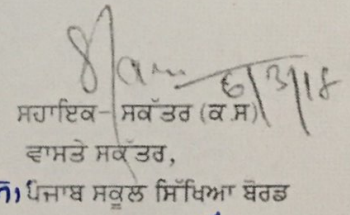 6/3/18
ਸਹਾਇਕ-ਸਕੱਤਰ (ਕ.ਸ)
ਵਾਸਤੇ ਸਕੱਤਰ,
ਪੰਜਾਬ ਸਕੂਲ ਸਿੱਖਿਆ ਬੋਰਡ